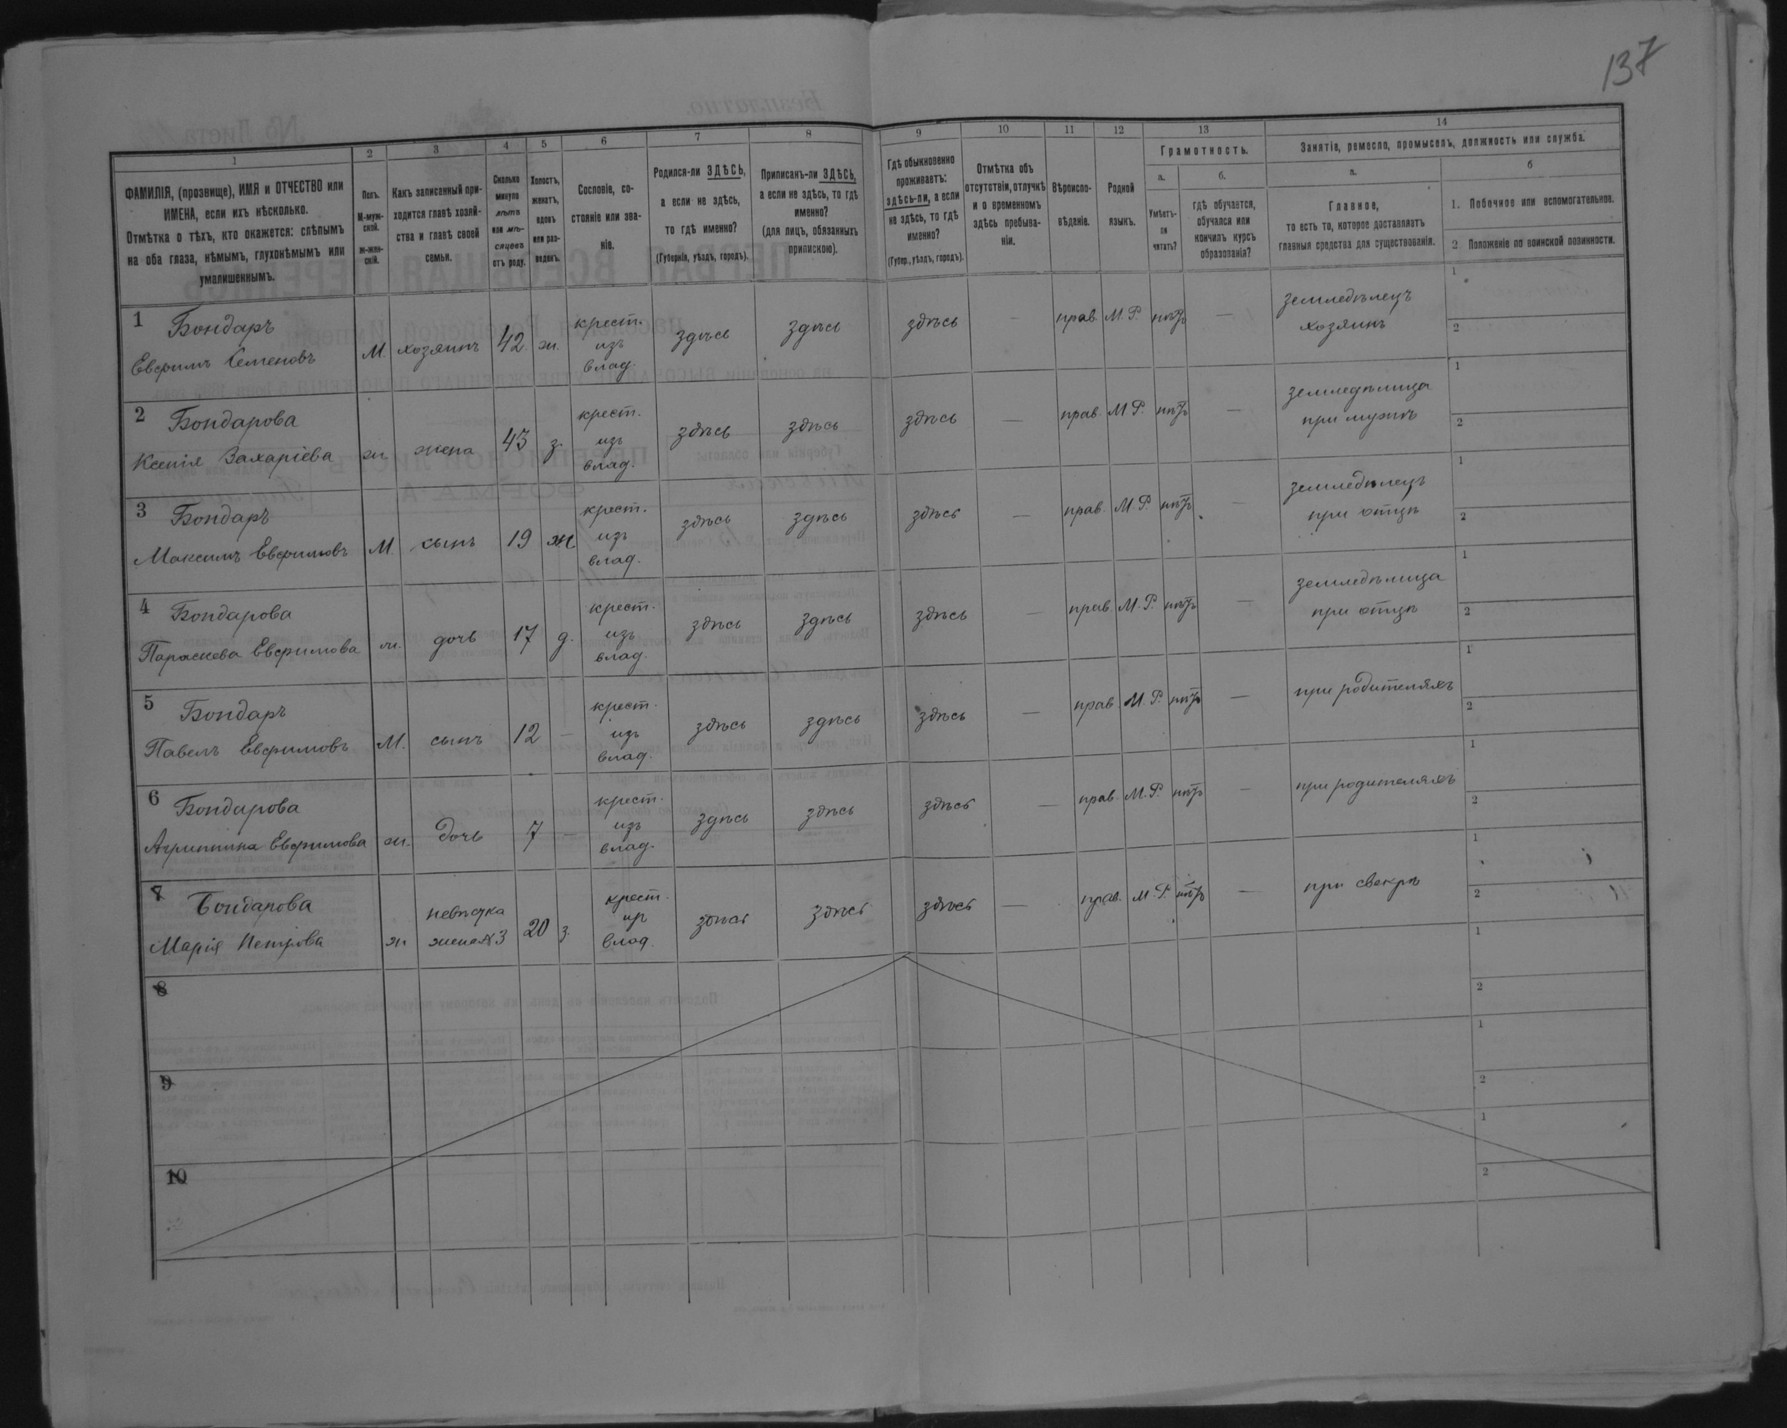 137
1
2
3
4
5
6
7
8
9
10
11
12
13
14
ФАМИЛІЯ, (прозвище), ИМЯ и ОТЧЕСТВО или
ИМЕНА, если ихъ нѣсколько.
Отмѣтка о тѣхъ, кто окажется: слѣпымъ
на оба глаза, нѣмымъ, глухонѣмымъ или
умалишеннымъ.
Полъ.
М-муж-
ской.
ж-жен-
скій.
Какъ записанный при-
ходится главѣ хозяй-
ства и главѣ своей
семьи.
Сколько
минуло
лѣтъ
или мѣ-
сяцевъ
отъ роду.
Холостъ,
женатъ,
вдовъ
или раз-
веденъ.
Сословіе, со-
стояніе или зва-
ніе.
Родился-ли ЗДѢСЬ,
а если не здѣсь,
то гдѣ именно?
(Губернія, уѣздъ, городъ).
Приписанъ-ли ЗДѢСЬ,
а если не здѣсь, то гдѣ
именно?
(для лицъ, обязанныхъ
припискою).
Гдѣ обыкновенно
проживаетъ:
здѣсь-ли, а если
не здѣсь, то гдѣ
именно?
(Губер., уѣздъ, городъ).
Отмѣтка объ
отсутствіи, отлучкѣ
и о временномъ
здѣсь пребыва-
ніи.
Вѣроиспо-
вѣданіе.
Родной
языкъ.
Грамотность.
а.
Умѣетъ-
ли
читать?
б.
гдѣ обучается,
обучался или
кончилъ курсъ
образованія?
Занятіе, ремесло, промыселъ, должность или служба.
а.
Главное,
то есть то, которое доставляетъ
главныя средства для существованія.
б
1. Побочное или вспомогательное.
2 Положеніе по воинской повинности.
1 Бондарь
Евфимъ Семеновъ
М. хозяинъ 42. ж.
крест.
изъ
влад.
здѣсь здѣсь здѣсь — прав. М.Р. нѣтъ —
земледѣлецъ
хозяинъ
1
2
2 Бондарова
Ксенія Захаріева
ж. жена 43 з.
крест.
изъ
влад.
здѣсь здѣсь здѣсь — прав. М.Р. нѣтъ —
земледѣлица
при мужѣ
1
2
3 Бондарь
Максимъ Евфимовъ
М. сынъ 19 ж
крест.
изъ
влад.
здѣсь здѣсь здѣсь — прав. М.Р. нѣтъ —
земледѣлецъ
при отцѣ
1
2
4 Бондарова
Параскева Евфимова
ж. дочь 17 д.
крест.
изъ
влад.
здѣсь здѣсь здѣсь — прав. М.Р. нѣтъ —
земледѣлица
при отцѣ
1
2
5 Бондарь
Павелъ Евфимовъ
М. сынъ 12 —
крест.
изъ
влад.
здѣсь здѣсь здѣсь — прав М.Р. нѣтъ —
при родителяхъ
1
2
6 Бондарова
Агриппина Евфимова
ж. дочь 7 —
крест.
изъ
влад.
здѣсь здѣсь здѣсь — прав. М.Р. нѣтъ —
при родителяхъ
1
2
7 Бондарова
Марія Петрова
ж
невѣстка
жена №3
20 з.
крест.
из
влад.
здѣсь здѣсь здѣсь — прав. М.Р. нѣтъ —
при свекрѣ
1
2
8
1
2
9
1
2
10
1
2